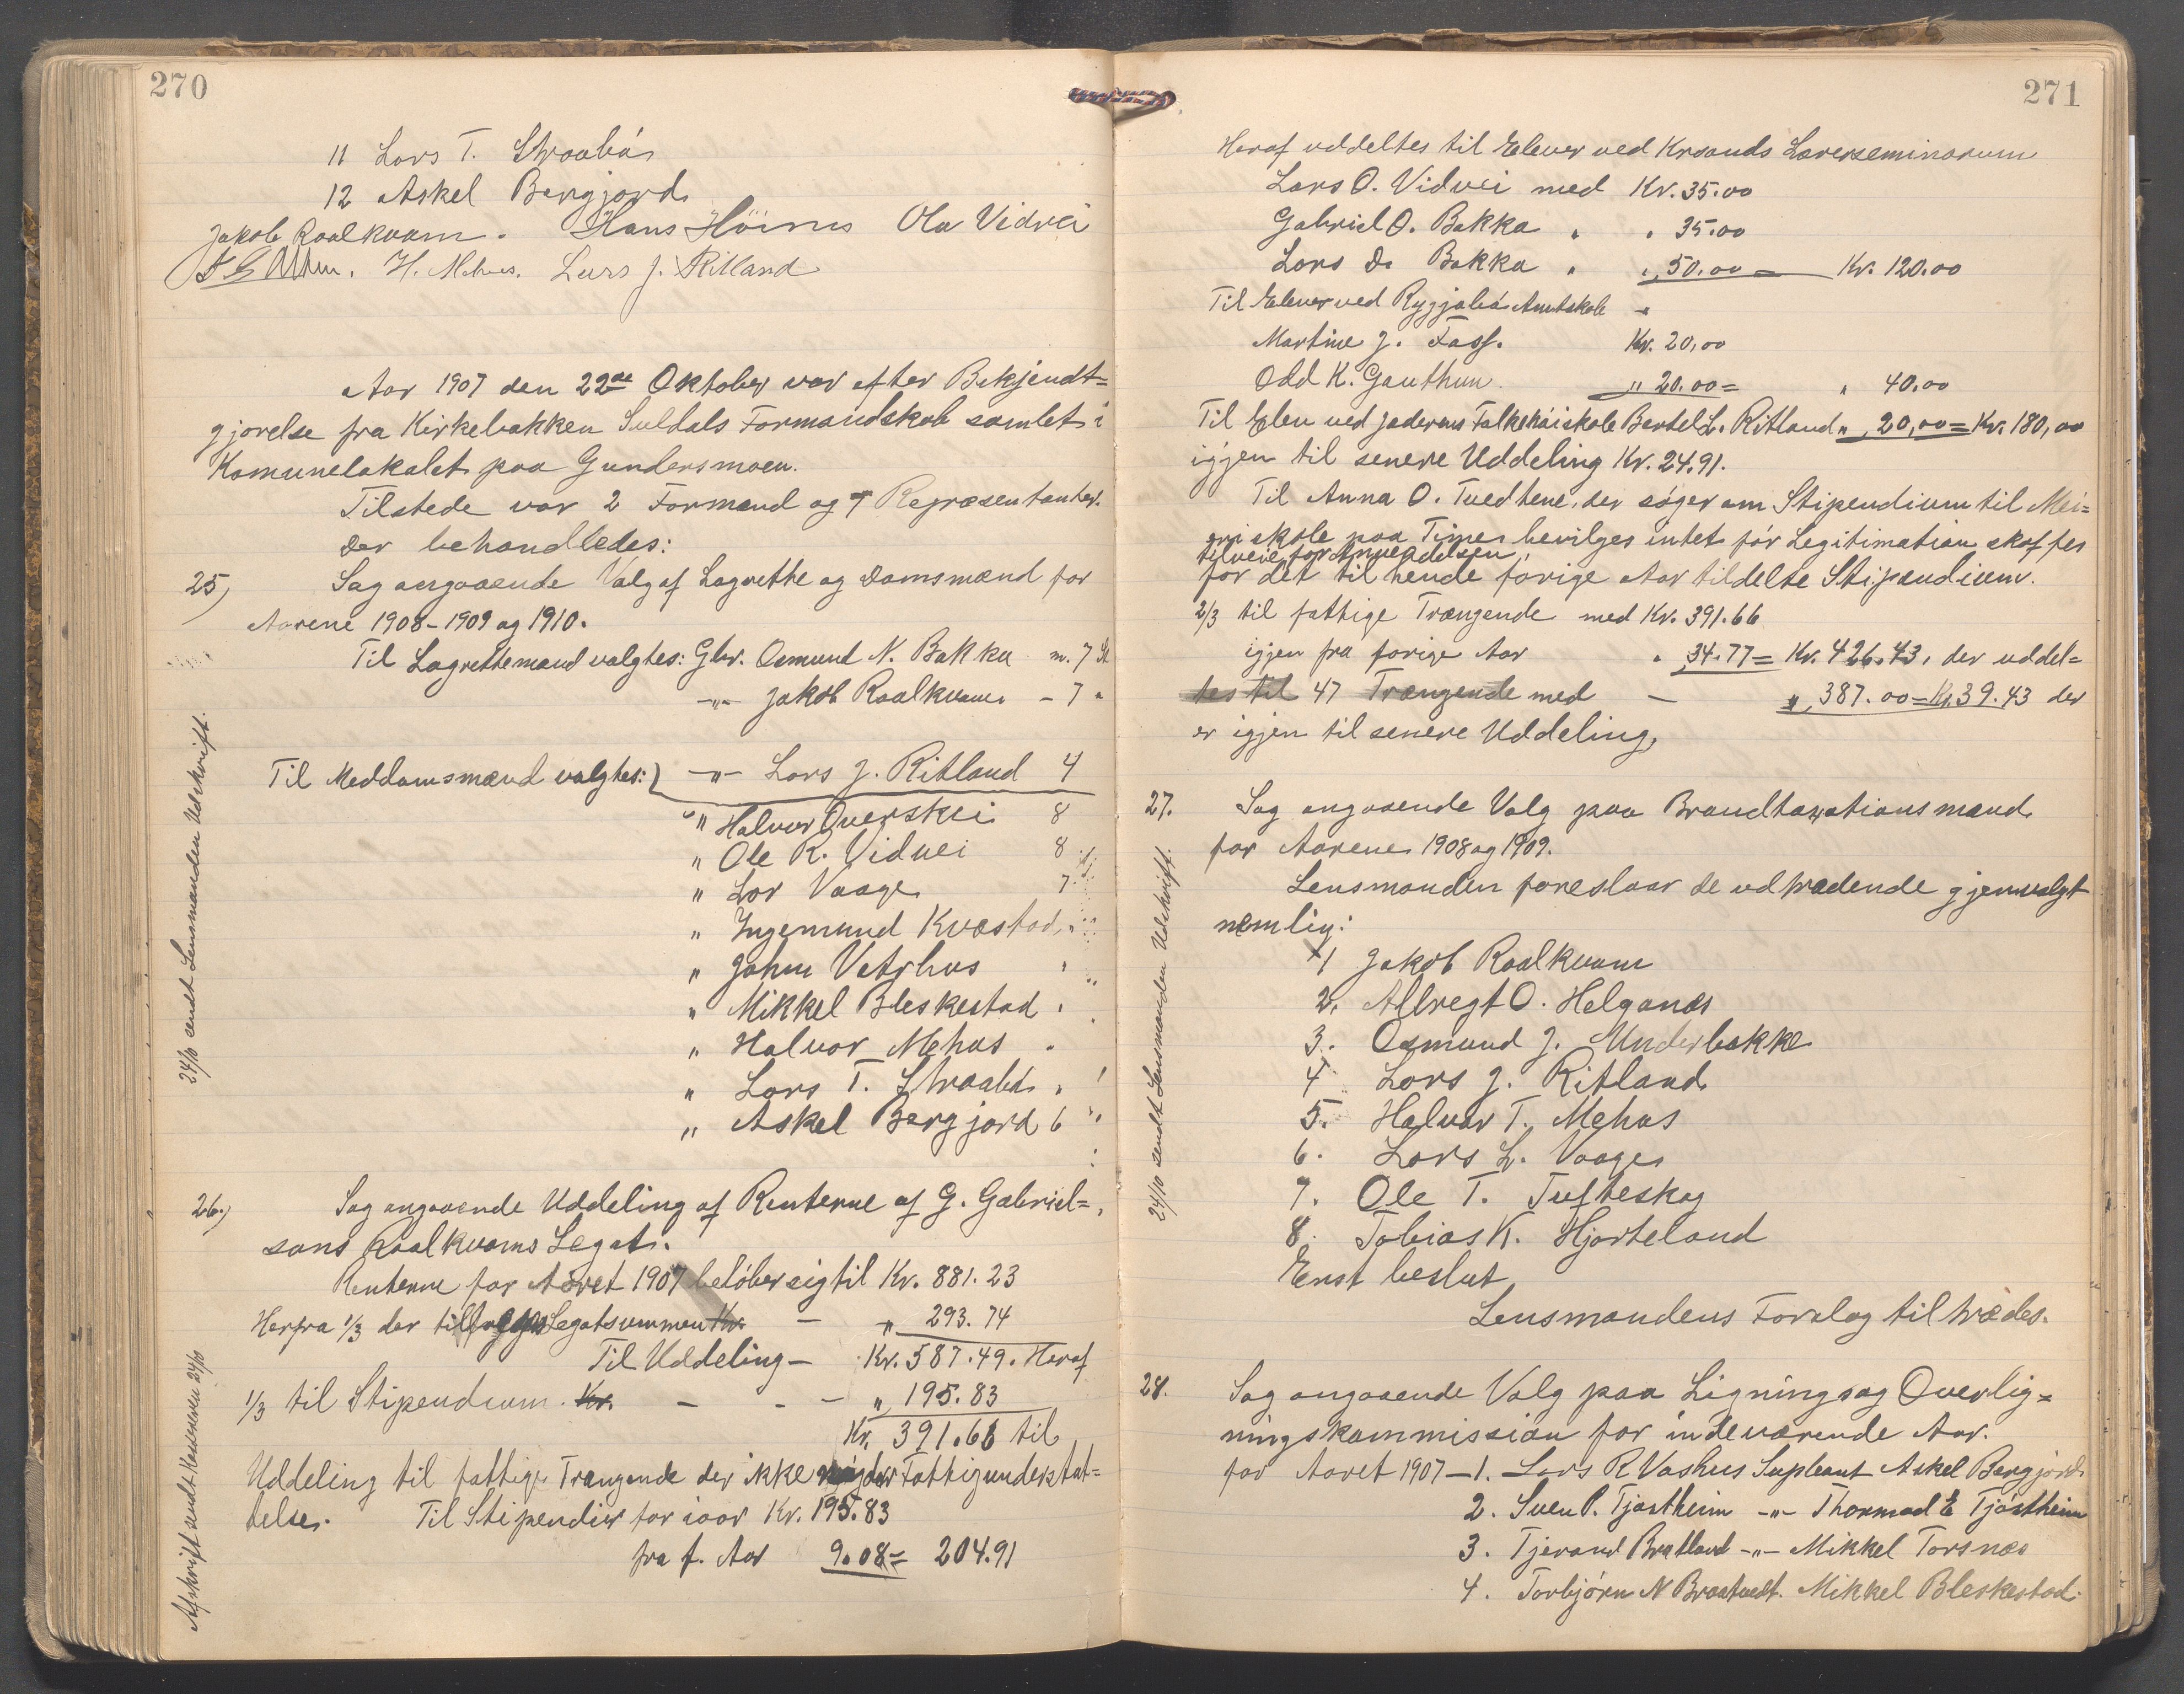 270
11 Lars T. Straabø
12 Askel Bergjord
Jakob Roalkvam. Hans Höines Ola Vidvei
H. Mehus. Lars J. Ritland
Aar 1907 den 22de Oktober var efter Bekjendt=
gjørelse fra Kirkebakken Suldals Formandskab samlet i
Komunelokalet paa Gundersmoen.
Tilstede var 2 Formænd og 7 Repræsentanter.
Der behandledes:
25) Sag angaaende Valg af Lagrette og Domsmænd for
Aarene 1908-1909 og 1910.
Til Lagrettemænd valgtes: Gbr. Osmund N. Bakka m. 7 St
-"- Jakob Roalkvam - 7 "
Til Meddomsmænd valgtes:) -"- Lars J. Ritland 4
" Halvor Overskei 8
" Ole R. Vidvei 8
" Lar Vaage 7
" Ingemund Kvæstad "
" John Vatshus "
" Mikkel Bleskestad "
" Halvor Mehus "
" Lars T. Straabø "
" Askel Bergjord 6
24/10 sendt Lensmanden Udskrift.
26.) Sag angaaende Uddeling af Renterne af G. Gabriel=
sens Roalkvams Legat.
Renterne for Aaret 1907 beløber sig til Kr. 881.23
Herfra 1/3 der tillægges Legatsummen Kr. - " 293.74
Til Uddeling - Kr. 587.49. Heraf
1/3 til Stipendium Kr. - - - " 195.83
Kr. 391.66 til
Uddeling til fattige Trængende der ikke Fattigunderstøt=
telse. Til Stipendier for iaar Kr. 195.83
fra f. Aar 9.08 = 204.91
Afskrift sendt Kassereren 24/10
271
Heraf uddeltes til Elever ved Krsands Lærerseminarium
Lars O. Vidvei med Kr. 35.00
Gabriel O. Bakka " " 35.00
Lars D. Bakka " " 50.00 = Kr. 120.00
Til Elever ved Ryggjabø Amtskole -
Martine J. Foss. Kr. 20,00
Odd K. Gauthun. " 20.00 = " 40.00
Til Elev ved Jæderens Folkehøiskole Bertel L. Ritland " 20,00 = Kr. 180,00
igjen til senere Uddeling Kr. 24.91.
Til Anna O. Tvedtene, der søger om Stipendium til Mei=
eriskole paa Time bevilges intet før Legitimation skaffes
tilveie for Anvendelsen
for det til hende forige Aar tildelte Stipendium.
2/3 til fattige Trængende med Kr. 391.66
igjen fra forige Aar " 34.77 = Kr. 426.43, der uddel=
tes til 47 Trængende med - " 387.00 = Kr. 39.43 der
er igjen til senere Uddeling,
27. Sag angaaende Valg paa Brandtaxationsmænd
for Aarene 1908 og 1909.
Lensmanden foreslaar de udtrædende gjenvalgt
nemlig:
1 Jakob Roalkvam
2. Albregt O. Helganæs
3. Osmund J. Underbakke
4 Lars J. Ritland
5. Halvor T. Mehus
6. Lars L. Vaage
7. Ole T. Tufteskog
8. Tobias K. Hjorteland
Enst beslut
Lensmandens Forslag tiltrædes.
24/10 sendt Lensmanden Udskrift.
28. Sag angaaende Valg paa Lignings og Overlig=
ningskommission for indeværende Aar.
for Aaret 1907 - 1. Lars R Vashus Supleant Askel Bergjord
2. Sven P. Tjøstheim -"- Thormod E Tjøstheim
3. Tjerand Bratland -"- Mikkel Torsnæs
4. Torbjørn N Braatvedt. Mikkel Bleskestad.